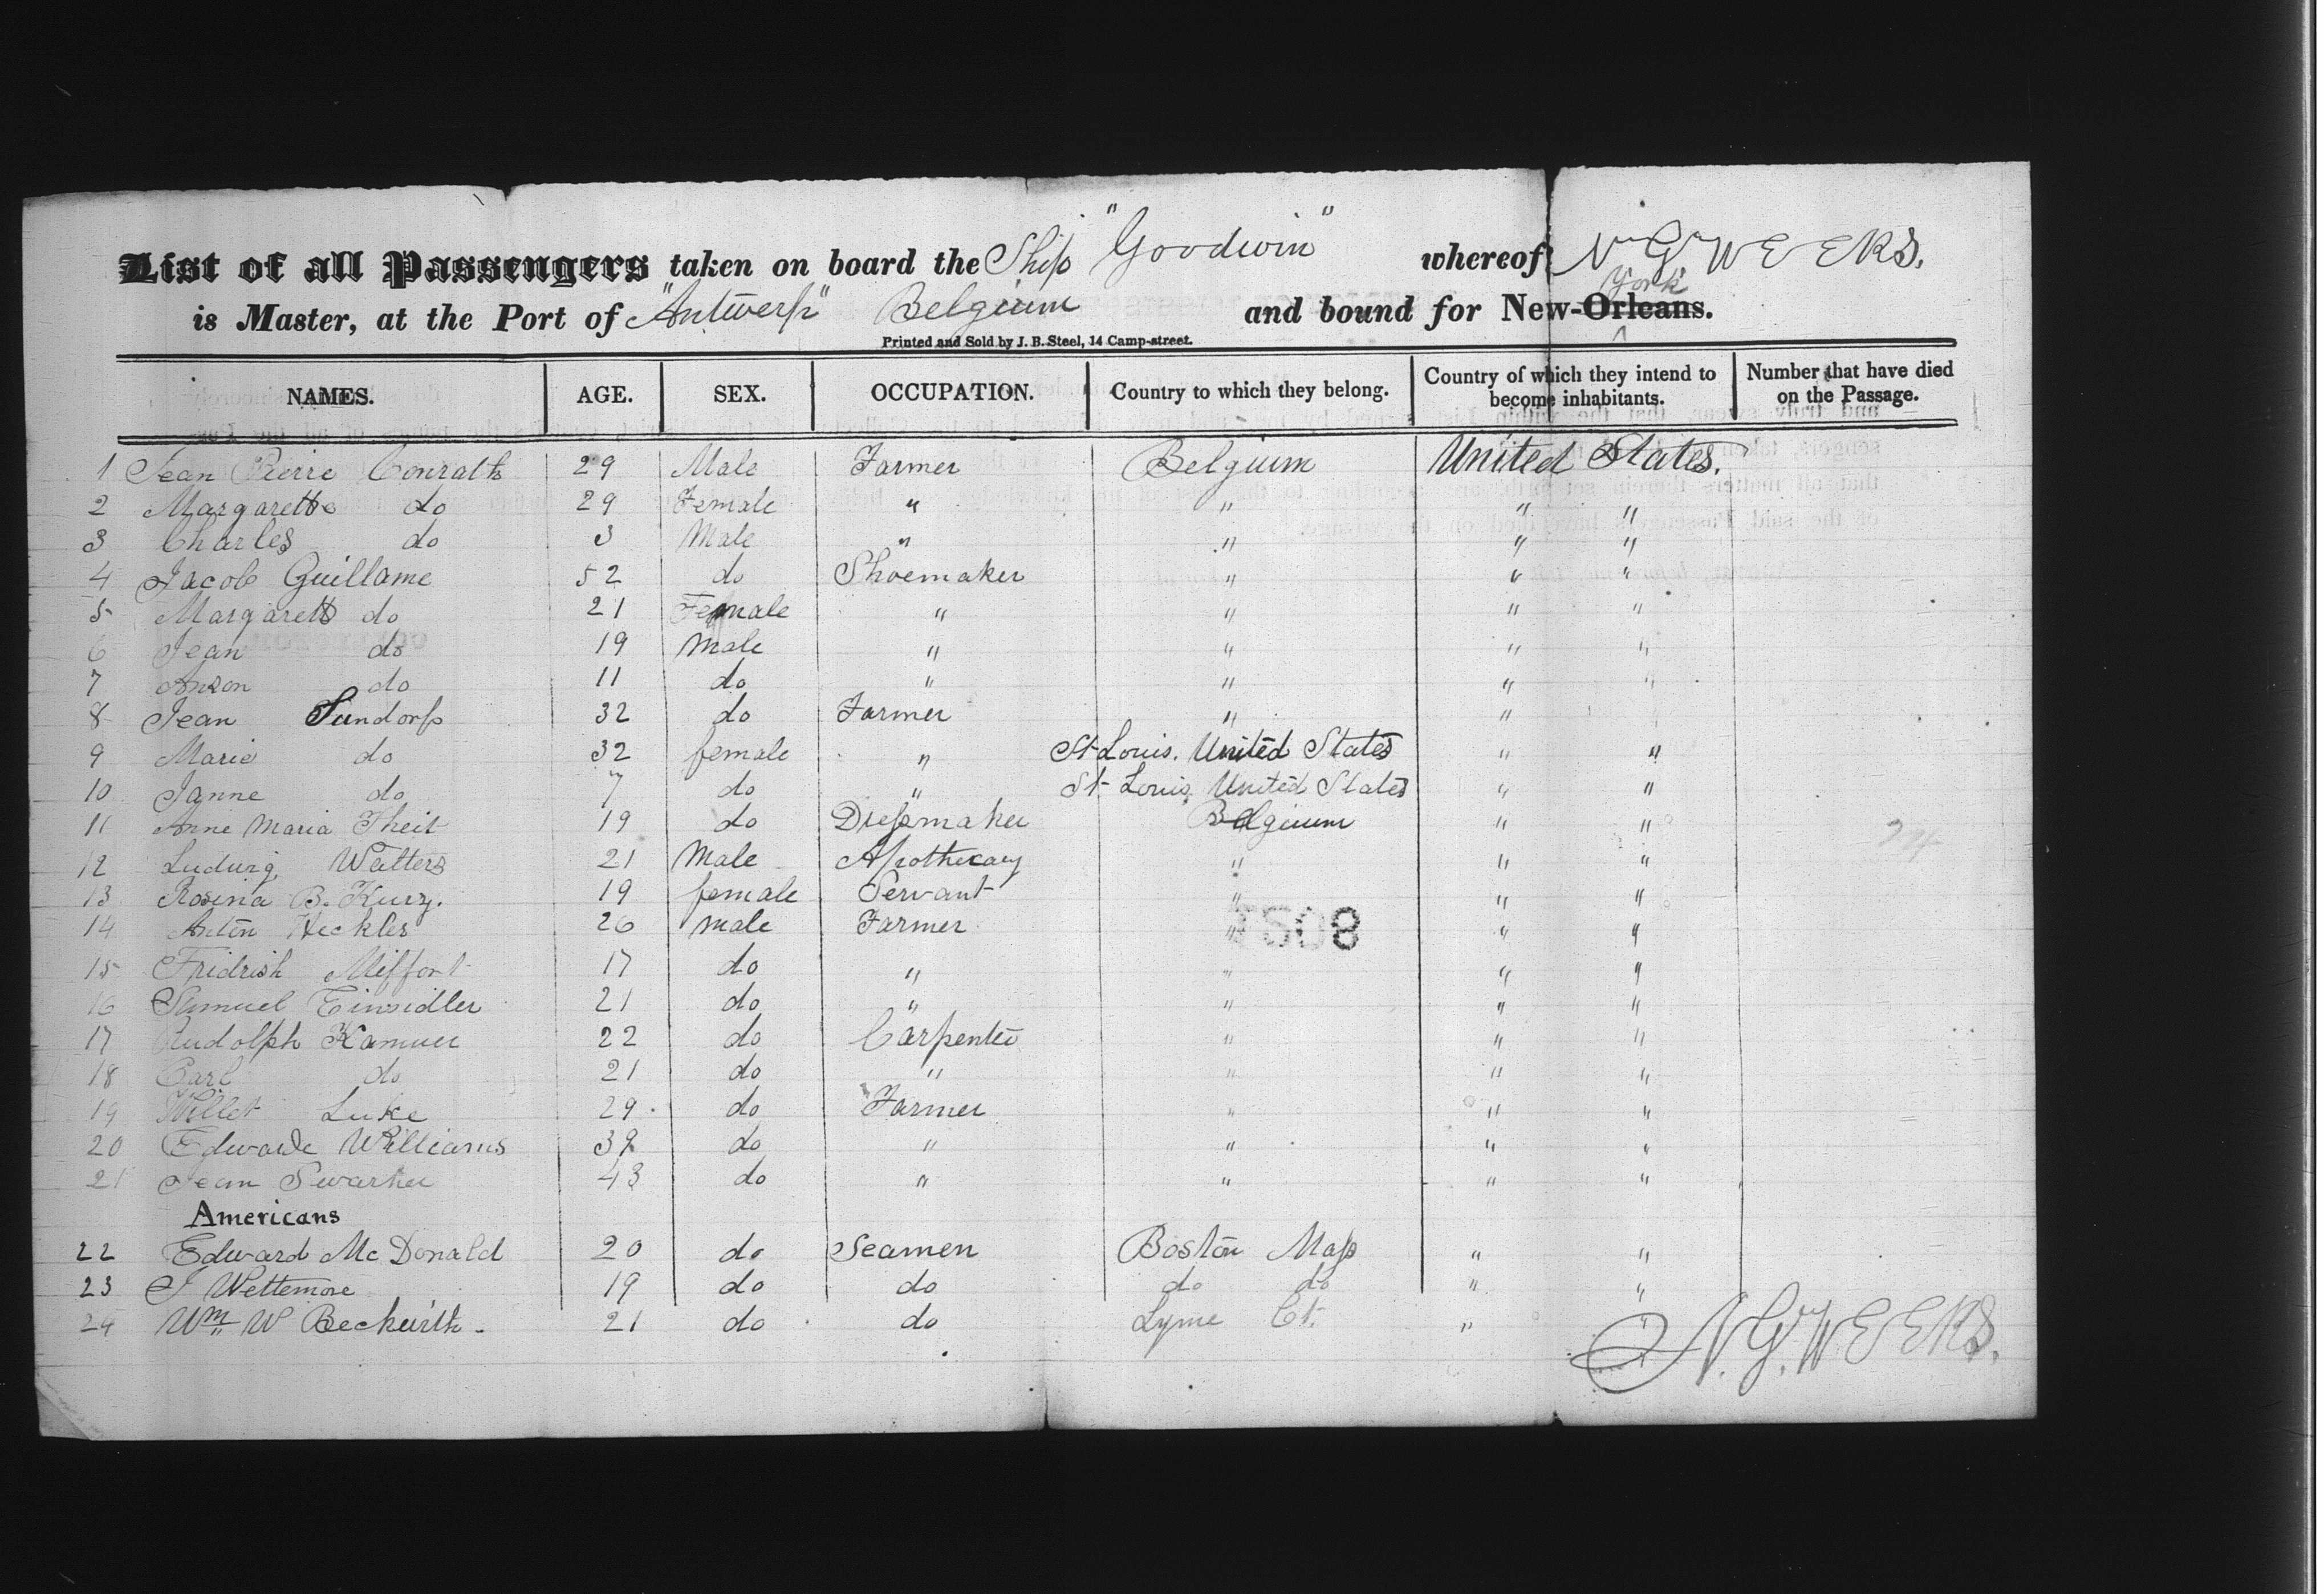 List of all Passengers taken on board the Ship "Goodwin" whereof N G WEEKS.
is Master, at the Port of "Antwerp" Belgium and bound for New-Orleans. York
Printed and Sold by J. B. Steel, 14 Camp-street.
NAMES. AGE. SEX. OCCUPATION. Country to which they belong. Country of which they intend to become inhabitants. Number that have died on the Passage.
1 Jean Pierre Conrath 29 Male Farmer Belgium United States.
2 Margarette do 29 Female " " " "
3 Charles do 3 Male " " " "
4 Jacob Guillame 52 do Shoemaker " " "
5 Margarett do 21 Female " " " "
6 Jean do 19 male " " " "
7 do 11 do " " " "
8 Jean Sundorp 32 do Farmer " "
9 Marie do 32 female " St Louis. United States " "
10 Janne do 7 do " St Louis United States " "
11 Anne Maria Theit 19 do Dressmaker Belgium " "
12 Ludwig Walters 21 Male Apothecary " " "
13 Rosina B. Kurz. 19 female Servant " " "
14 Anton Heckler 26 male Farmer " " "
15 Fridrish Miffort 17 do " " " "
16 Samuel Einsidler 21 do " " " "
17 Rudolph Kamuer 22 do Carpenter " " "
18 Carl do 21 do " " " "
19 Willet Luke 29 do Farmer " " "
20 Edwarde Williams 39 do " " " "
21 Jean Swarker 43 do " " " "
Americans
22 Edward Mc Donald 20 do Seamen Boston Mass " "
23 J Wettemore 19 do do do do " "
24 Wm W Beckwith 21 do do Lyme Ct. " "
N. G. WEEKS.